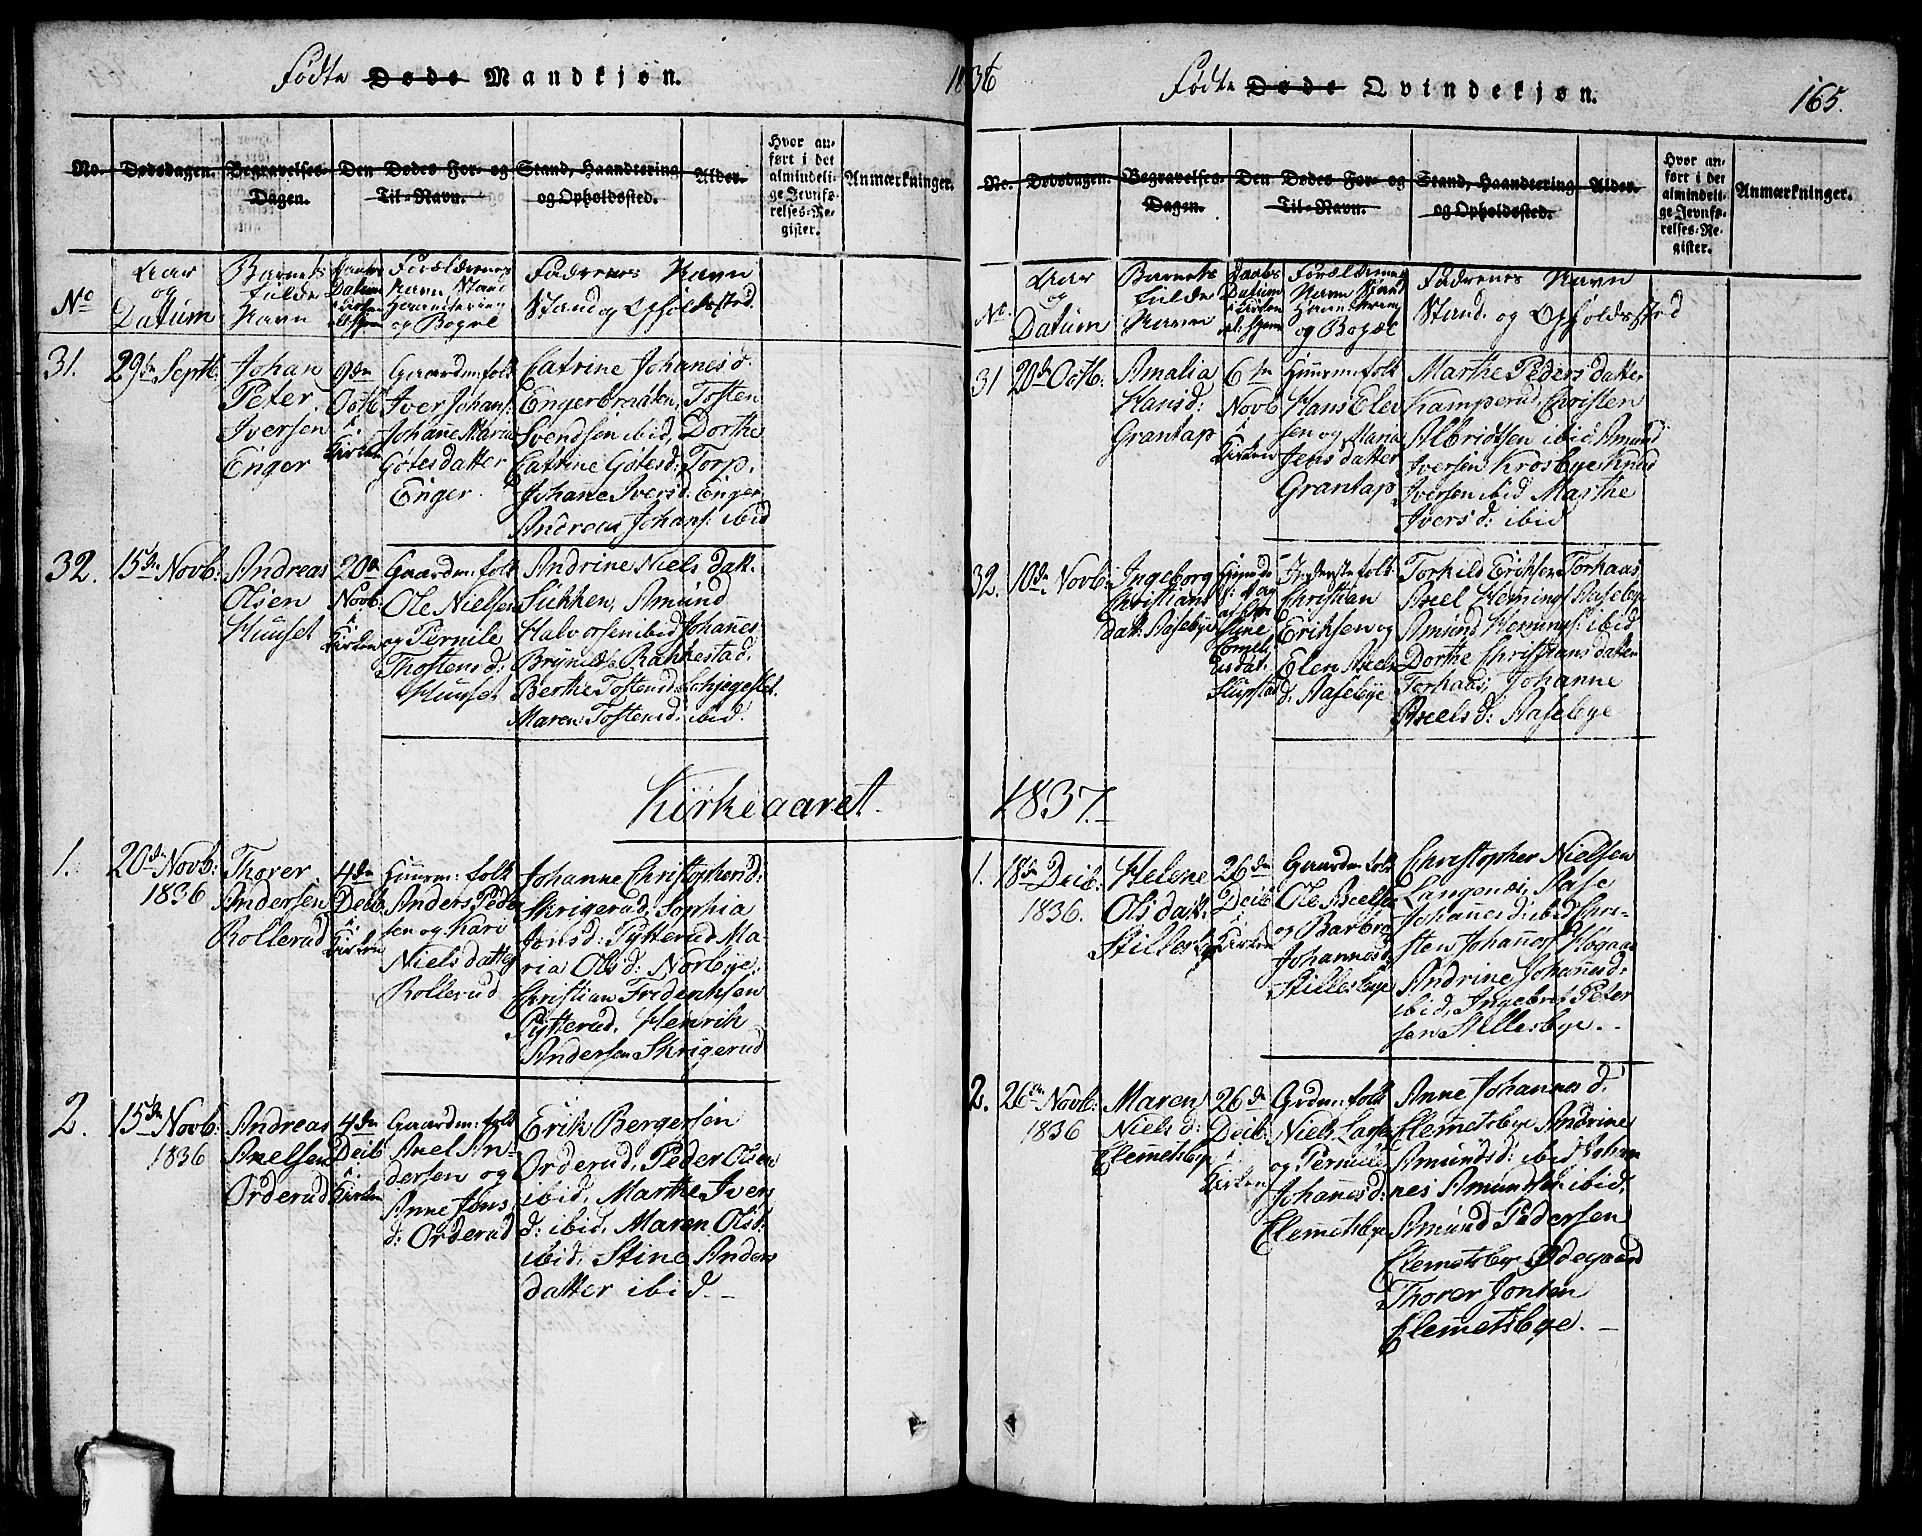 Fødte Døde Mandkjøn.
1836
No. Dødsdagen. Begravelses-Dagen. Den Dødes For- og Til-Navn. Stand, Haandtering og Opholdssted. Alder. Hvor anført i det almindelige Jevnførelses-Register. Anmærkninger.
No Aar og Datum Barnets fulde Navn Daabs Datum Forældrenes Navn Stand Haandtering og Bopæl Faddrenes Navn Stand og Opholdssted.
31. 29de Septb: Johan Peter Iversen Enger
9de Octb i Kirken
Gaardm: folk
Iver Johans:
Johane Maria
Gøtesdatter
Enger.
Catrine Johanesd.
Engerbraaten, Tosten
Svendsen ibid, Dorthe
Catrine Gøtesd: Torp.
Johane Iversd. Enger,
Andreas Johans: ibid
32. 15de Novb: Andreas Olsen Huuset
20de Novb: i Kirken
Gaardm: folk
Ole Nielsen
og Pernile
Thostensd:
Huuset
Andrine Niels datt.
Sikken, Amund
Halvorsen ibid Johannes
Brynilds. Rakkestad.
Berthe Tostensd:
Maren Tostensd. ibid.
Kirkeaaret
1. 20de Novb: 1836 Thorer Andersen Rollerud
4de Decb i Kirken
Huusm: folk
Anders Peder
sen og Kari
Niels datter
Rollerud
Johanne Christophersd:
Skrigerud, Sophia
Jonsd: Pytterud Ma-
ria Olsd: Norbye,
Christian Frederiksen
Pytterud, Henrik
Andersen Skrigerud
2. 15de Novb: 1836 Andreas Axelsen Orderud
4de Decb i Kirken
Gaardm: folk
Axel An-
dersen og
Anne Jons
d: Orderud
Erik Bergersen
Orderud, Peder Olsen
ibid, Marthe Ivers
d: ibid, Maren Olsd.
ibid, Stine Anders
datter ibid. –
Fødte Døde Qvindekjøn.
165.
No. Dødsdagen. Begravelses-Dagen. Den Dødes For- og Til-Navn. Stand, Haandtering og Opholdssted. Alder. Hvor anført i det almindelige Jevnførelses-Register. Anmærkninger.
No. Aar og Datum Barnets fulde Navn Daabs Datum i Kirken Forældrenes Navn Stand og Bopæl Faddrenes Navn Stand. og Opholdssted
31 20de Octb: Amalia Hansd: Grantap
6te Novb i Kirken
Huusm: folk
Hans Elev
sen og Maria
Jens datter
Grantap
Marthe Peders datter
Kamperud, Christen
Albridtsen ibid Amund
Iversen Krosbye Knud
Iversen ibid Marthe
Ivers d: ibid
32. 10de Novb: Ingeborg Christians datt. Aasebye
Inderste folk
Christian
Eriksen og
Elen Axels
d. Aasebye
Torkild Eriksen Torkaas
Axel Hemings: Aasebye
Amund Hemings: ibid
Dorthe Christians datter
Torkaas, Johanne
Axels d: Aasebye
1837.
1. 18de Decb: 1836. Helene Ols datt.
26de Decb i Kirken
Gaardm: folk
Ole Axelsen
og Barbro
Johannesd:
Stillesbye
Christopher Nielsen
Langenæs, Aase
Johannesd: ibid Chri-
sten Johannes:
Andrine Johannesd:
ibid, Ingebret Peter
sen Stillesbye. –
2. 26de Novb: 1836 Maren Niels d: Clemetsbye
26de Decb: i Kirken
Grdm: folk
Niels Lars
og Pernile
Johannesd:
Clemetsbye
Anne Johannesd.
Clemetsbye Andrine
Amundsd: ibid Johan
nes Amunds: ibid.
Amund Pedersen
Clemetsbye Ødegaard
Thorer Jonsen
Clemetsbye. –